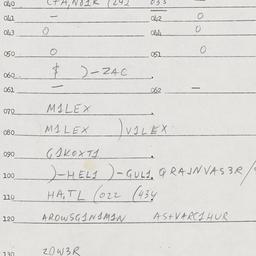 040 CTA,NO1K (242 033
041 — 042 0
043 0 044 0
050 0 051 0
060 $ )-ZAC
061 — 062 —
070 M1LEX
080 M1LEX )V1LEX
090 G1KOXT1
100 )-HEL1 )-GUL1. QRAJNVAS3R/
110 HA,TL (022 (434
120 AROWSG1N1M1N AS+VARC1HUR
130 20W3R